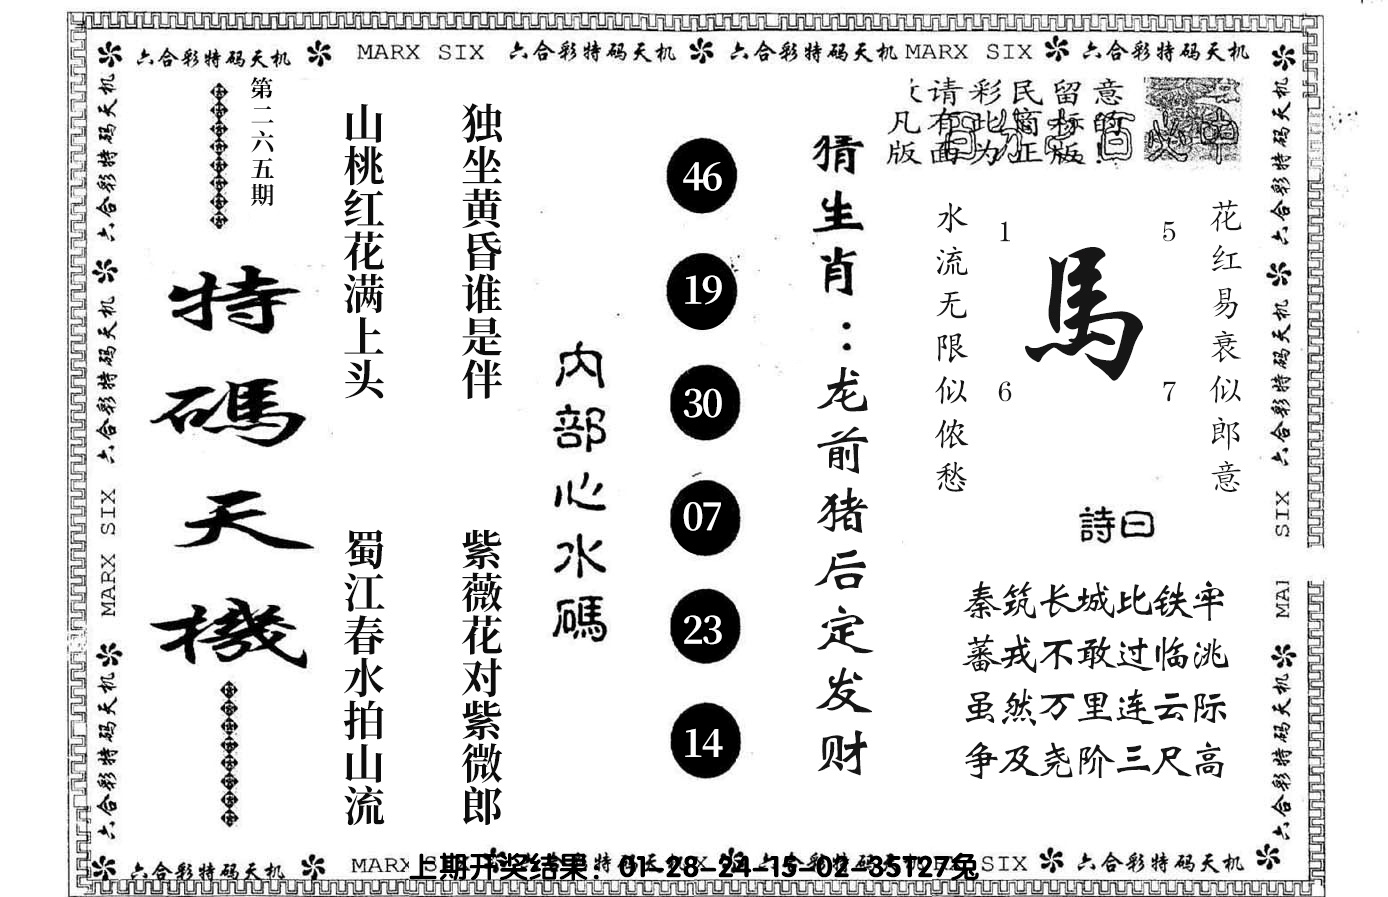 六合彩特码天机 MARX SIX 六合彩特码天机 六合彩特码天机 MARX SIX 六合彩特码天机
第二六五期
特碼天機
山桃红花满上头
蜀江春水拍山流
独坐黄昏谁是伴
紫薇花对紫微郎
内部心水碼
46
19
30
07
23
14
猜生肖：龙前猪后定发财
请彩民留意
凡有此窗标的
版面为正版!
水流无限似侬愁
1
5
馬
6
7
花红易衰似郎意
詩曰
秦筑长城比铁牢
蕃戎不敢过临洮
虽然万里连云际
争及尧阶三尺高
六合彩特码天机 六合彩特码天机 MARX SIX 六合彩特码天机
六合彩特码天机 六合彩特码天机 SIX MAI 六合彩特码天机
六合彩特码天机 MARX 特码天机 SIX 六合彩特码天机
上期开奖结果：01-28-24-15-02-35T27兔